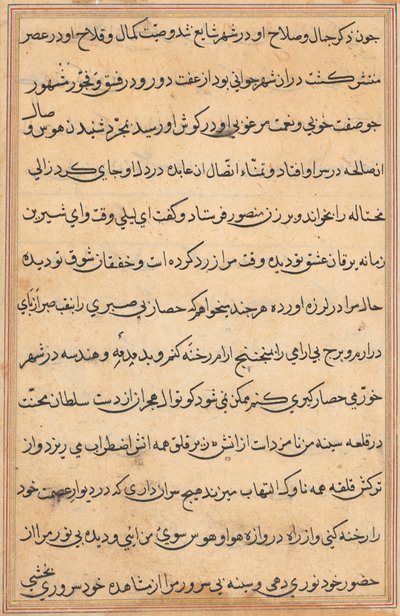 چون ذکر جمال وصلاح او در شهر شایع شد وصیت کمال و فلاح او در عصر
منتشر کشت در ان شهر جوانی بود از عفت دور و در فسق و فجور مشهور
چو صفت خوبی و نعت مرغوبی او در کوش او رسید بمجرد شنیدن هوس وصال
ان صالحه در سر او افتاد و تمناء اتصال ان عابده در دل او جای کرد زالی
محتاله را بخواند و بر زن منصور فرستاد و کفت ای لیلی وقت و ای شیرین
زمانه یرقان عشق تو دیده وقت مرا زرد کرده است و خفقان شوق تو دیده
حاله مرا در لرزه اورده هر چند میخواهم که حصار بی صبری را بنقب صبر از پای
در ارم و برج بی ارامی را بمنجنیج ارام رخنه کنم و بدمدمه و هندسه در شهر
خورمی حصار کیری کنم ممکن نمی شود کوتوال هجر از ان دست سلطان محنت
در قلعه سینه من نامزد است از اتش زنبر قلق همه اتش اضطراب می ریزد و از
ترکش قلقه همه ناوک التهاب میزند هیچ سر ان داری که در دیوار عصمت خود
را رخنه کنی و از راه دروازه هوا و هوس سوی من ایی و دیده بی نور مرا از
حضور خود نوری دهی و سینه بی سرور مرا از مشاهده خود سروری بخشی